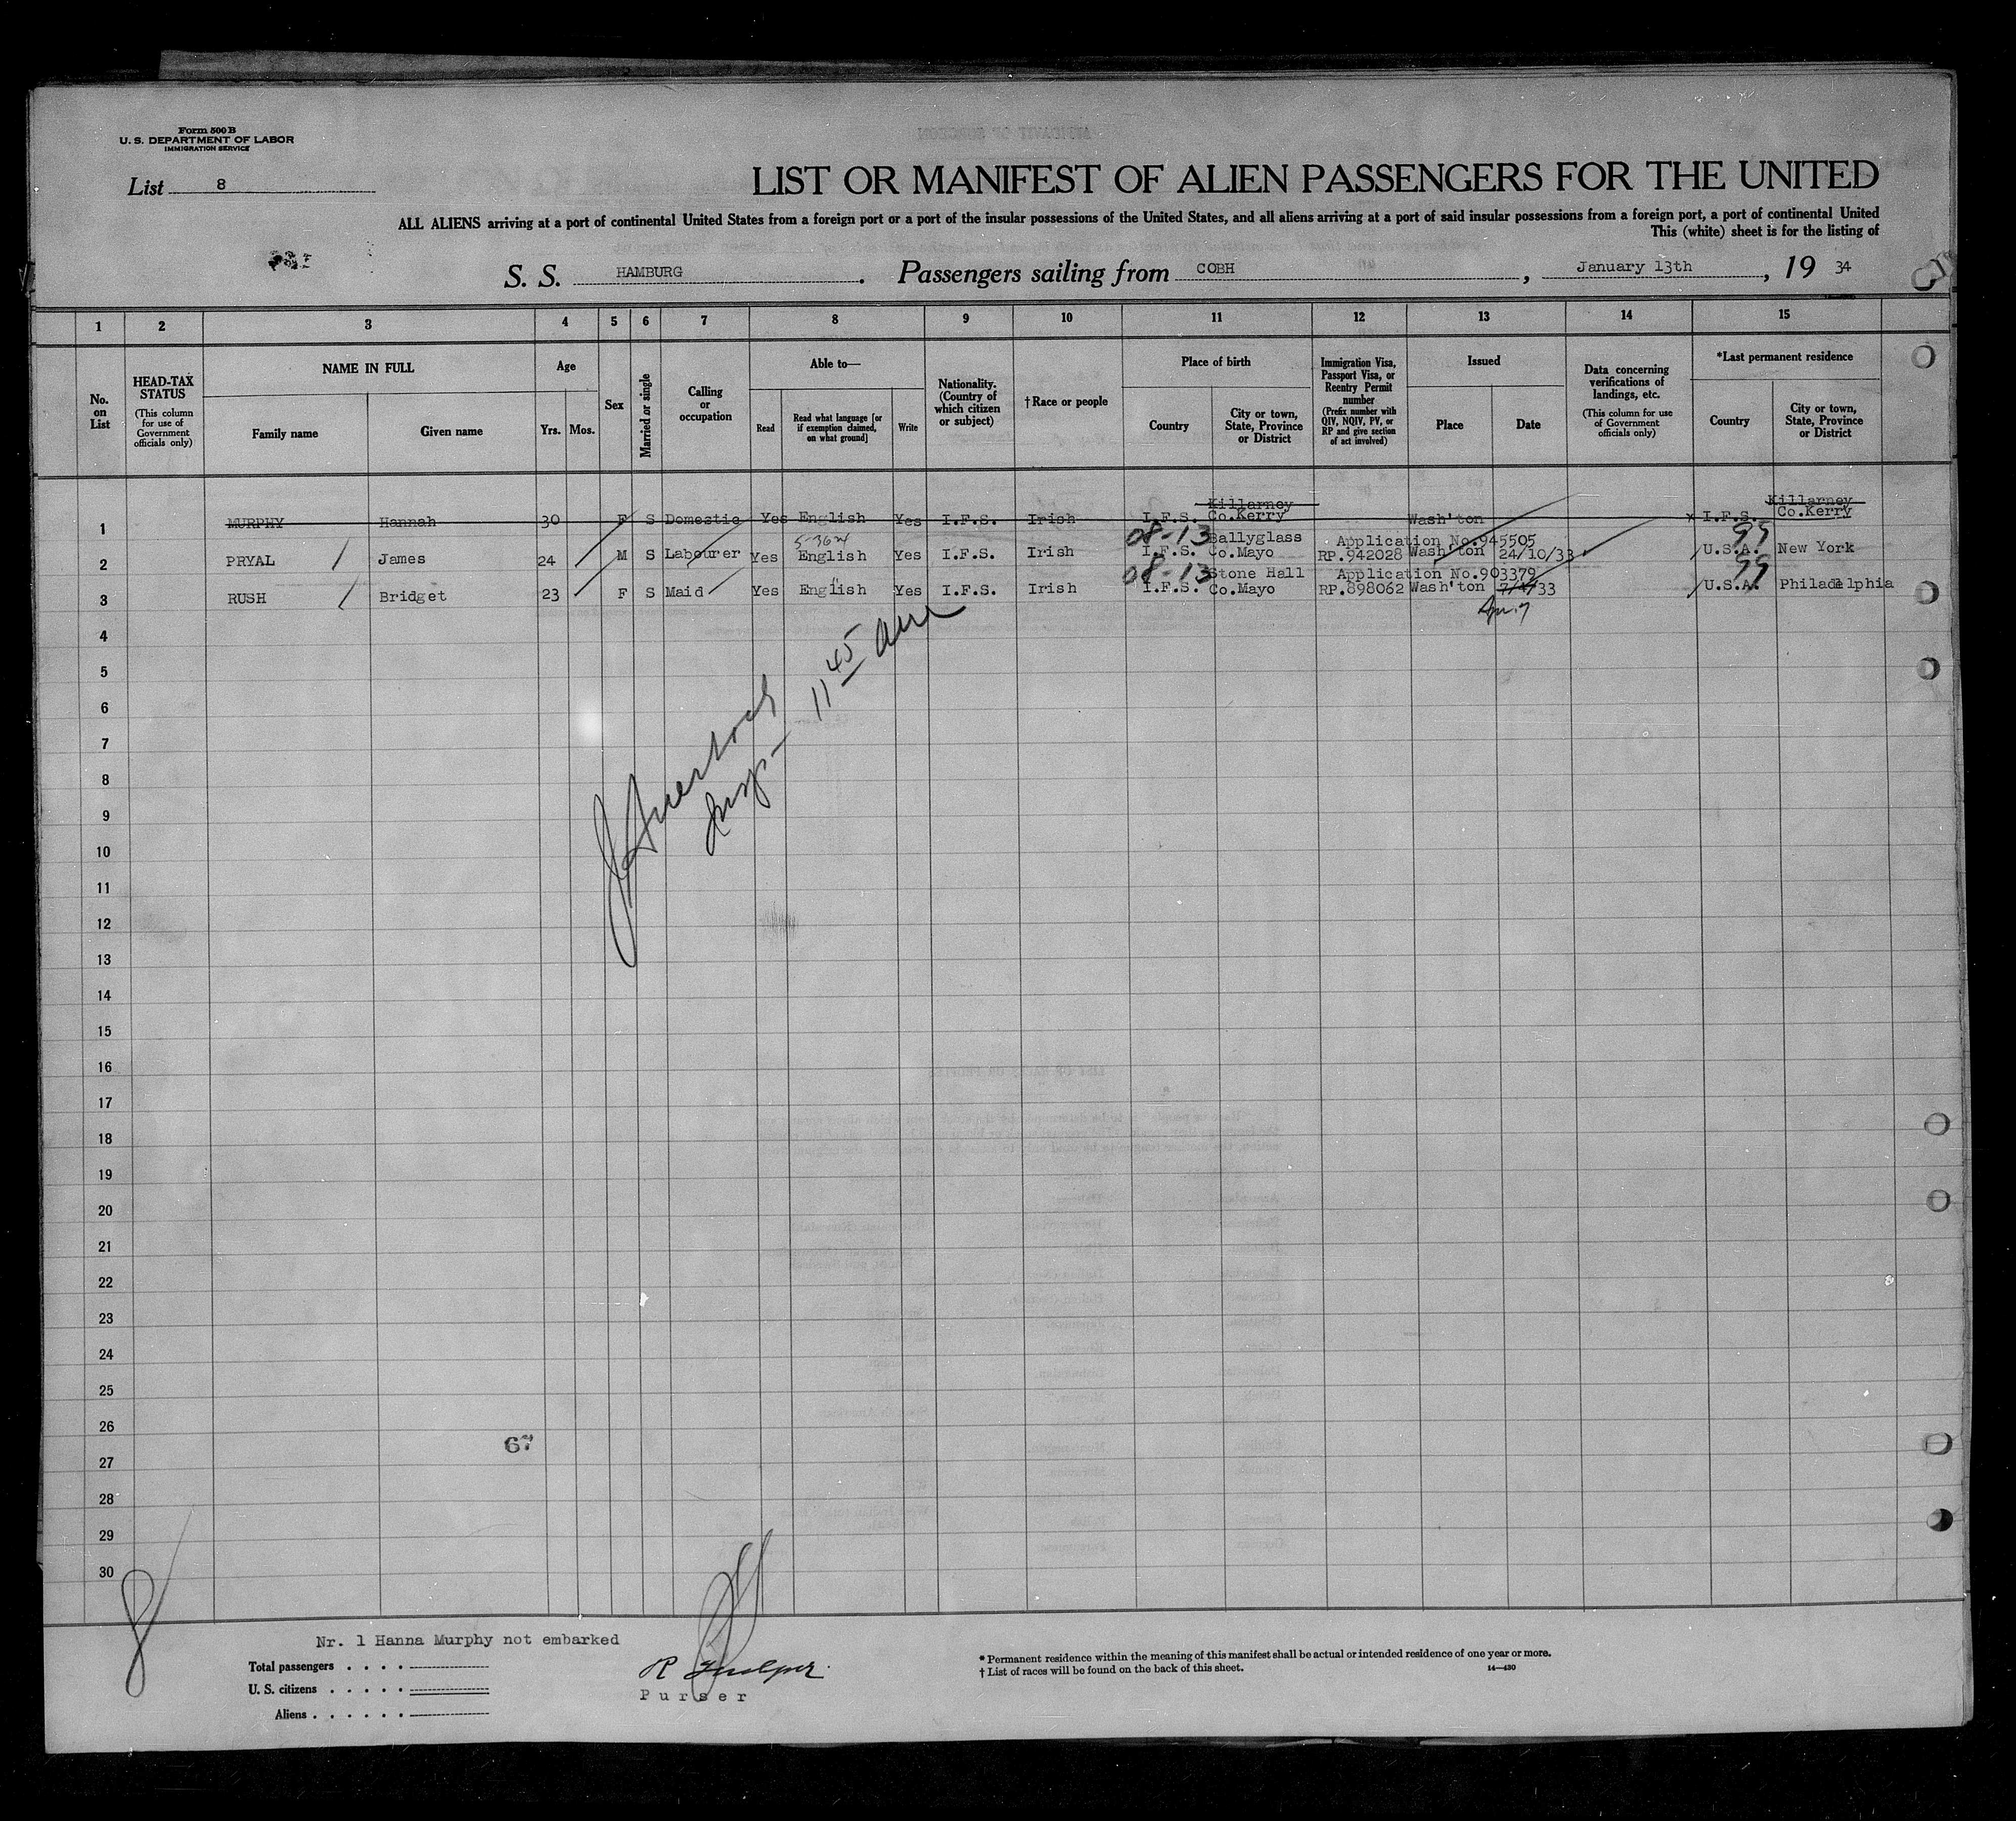 Form 500 B
U. S. DEPARTMENT OF LABOR
IMMIGRATION SERVICE
List 8
LIST OR MANIFEST OF ALIEN PASSENGERS FOR THE UNITED
ALL ALIENS arriving at a port of continental United States from a foreign port or a port of the insular possessions of the United States, and all aliens arriving at a port of said insular possessions from a foreign port, a port of continental United
This (white) sheet is for the listing of
S. S. HAMBURG. Passengers sailing from COBH, January 13th, 19 34
1 2 3 4 5 6 7 8 9 10 11 12 13 14 15
No. on List
HEAD-TAX STATUS
(This column for use of Government officials only)
NAME IN FULL
Family name
Given name
Age
Yrs. Mos.
Sex
Married or single
Calling or occupation
Able to—
Read
Read what language [or if exemption claimed, on what ground]
Write
Nationality. (Country of which citizen or subject)
†Race or people
Place of birth
Country
City or town, State, Province or District
Immigration Visa, Passport Visa, or Reentry Permit number
(Prefix number with QIV, NQIV, PV, or RP and give section of act involved)
Issued
Place
Date
Data concerning verifications of landings, etc.
(This column for use of Government officials only)
*Last permanent residence
Country
City or town, State, Province or District
Killarney Killarney
1 MURPHY Hannah 30 F S Domestic Yes English Yes I.F.S. Irish I.F.S. Co.Kerry Wash'ton x I.F.S. Co.Kerry
08-13 Ballyglass Application No.945505 99
2 PRYAL James 24 M S Labourer Yes English Yes I.F.S. Irish I.F.S. Co.Mayo RP.942028 Wash'ton 24/10/33 U.S.A. New York
08-13 Stone Hall Application No.903379 99
3 RUSH Bridget 23 F S Maid Yes English Yes I.F.S. Irish I.F.S. Co.Mayo RP.898062 Wash'ton 7/4/33 U.S.A. Philadelphia
4
5
6
7
8
9
10
11
12
13
14
15
16
17
18
19
20
21
22
23
24
25
26
27
28
29
30
Insp - 11 45 am
67
8
Nr. 1 Hanna Murphy not embarked
Total passengers . . . .
U. S. citizens . . . . .
Aliens . . . . . .
R
Purser
* Permanent residence within the meaning of this manifest shall be actual or intended residence of one year or more.
† List of races will be found on the back of this sheet.
14—430